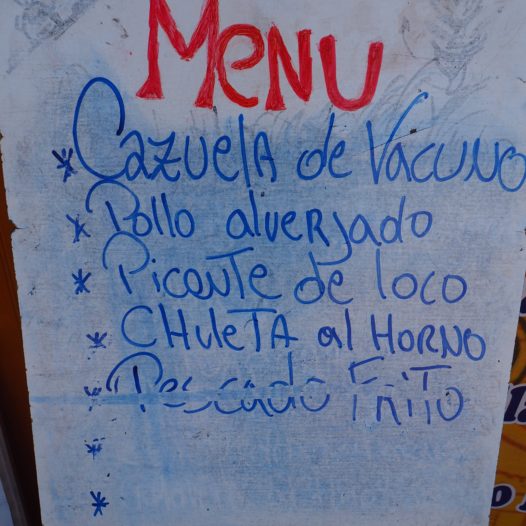 MENU
* Cazuela de Vacuno
* Pollo alverjado
* Picante de loco
* CHuleTA al HORNO
* Pescado Frito
*
*